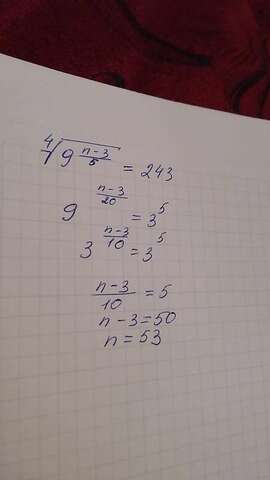 ⁴√(9^((n-3)/5)) = 243
9^((n-3)/20) = 3^5
3^((n-3)/10) = 3^5
(n-3)/10 = 5
n-3=50
n=53